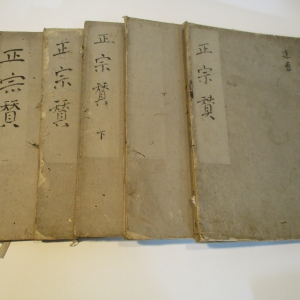 正宗賛
正宗賛
正宗賛
下
正宗賛